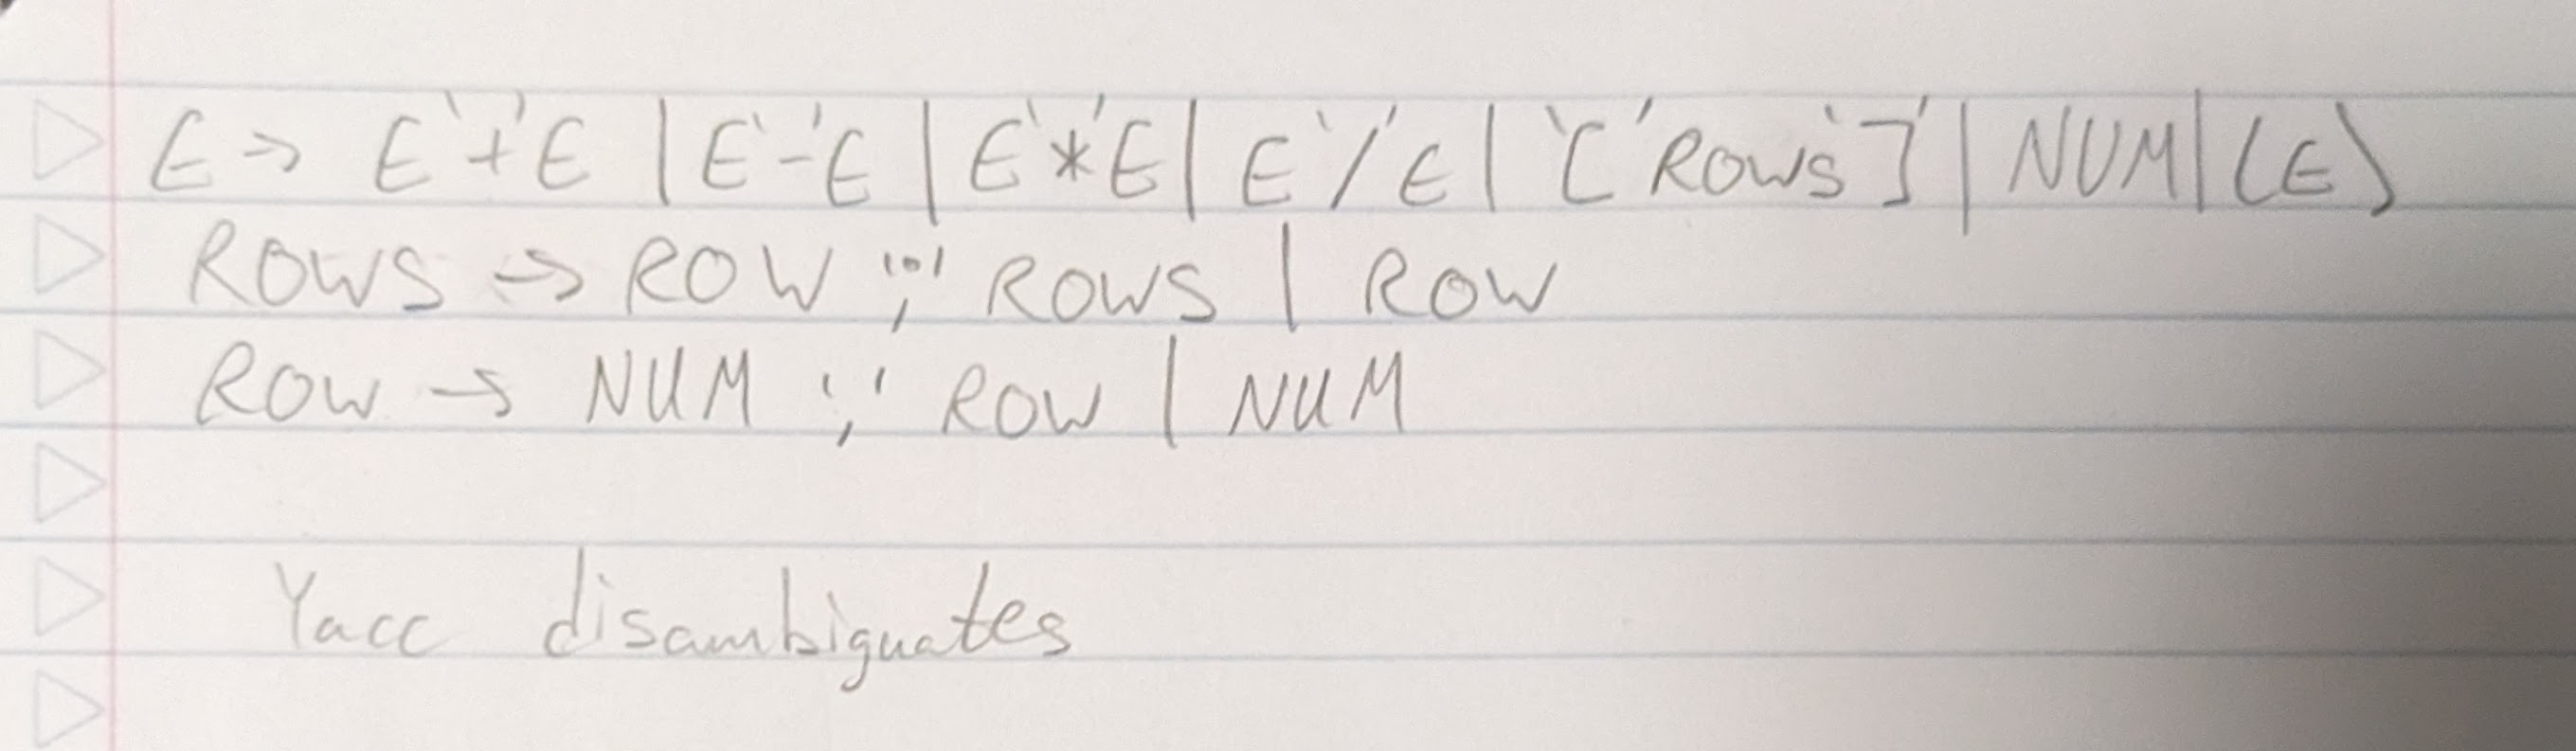 E → E '+' E | E '-' E | E '*' E | E '/' E | '[' ROWS ']' | NUM | (E)
ROWS → ROW ';' ROWS | ROW
ROW → NUM ',' ROW | NUM
Yacc disambiguates